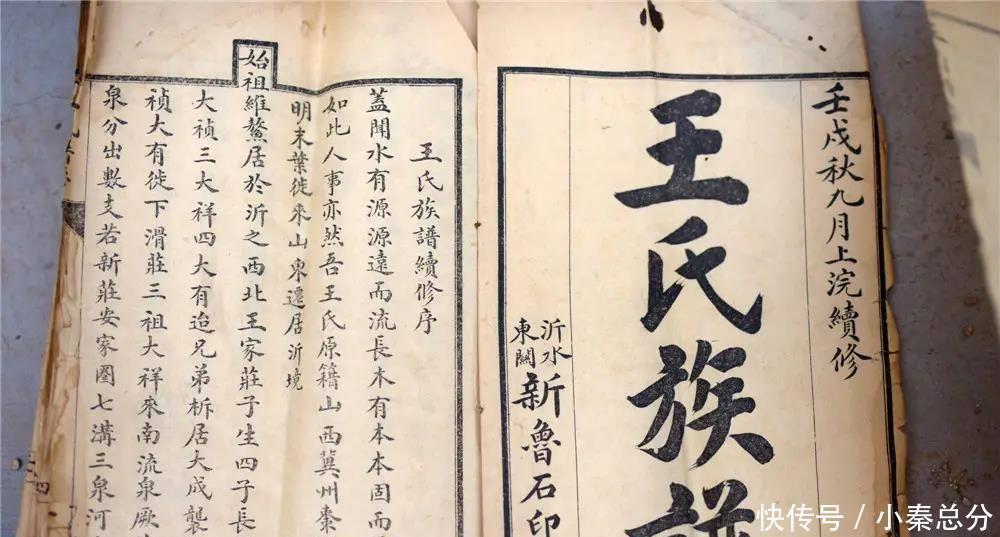 壬戌秋九月上浣續修
王氏族譜
沂水
東關
新魯石印
王氏族譜續修序
蓋聞水有源源遠而流長木有本本固而
如此人事亦然吾王氏原籍山西冀州棗
明末葉徙來山東遷居沂境
始祖維鰲居於沂之西北王家莊子生四子長
大禎三大祥四大有迨兄弟析居大成襲
禎大有徙下滑莊三祖大祥來南流泉厥
泉分出數支若新莊安家圈七溝三泉河
快传号 / 小秦总分